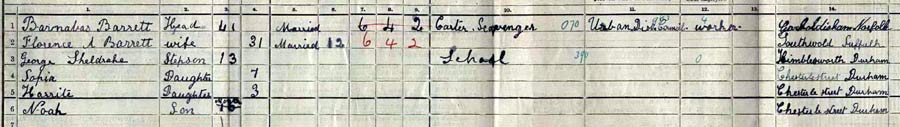 1 Barnabas Barrett Head 41 Married 6 4 2 Carter, Scavenger 070 Urban District Council worker Garboldisham Norfolk
2 Florence A Barrett wife 31 Married 12 6 4 2 Southwold Suffolk
3 George Sheldrake Stepson 13 School 390 0 Kimblesworth Durham
4 Sopia Daughter 7 Chester le street Durham
5 Harrite Daughter 3 Chester le street Durham
6 Noah Son Chester le street Durham